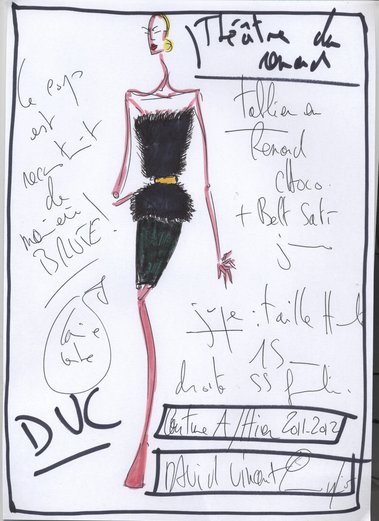 Théâtre du
renard
Le corps
est
reconstruit
de
manière
BRUTE!
Tablier en
Renard
CHOCO.
+ Belt Satin
jupe: taille Haute
15
droite ss
DUC
Couture A/Hiver 2011-2012
DAVID Vincent